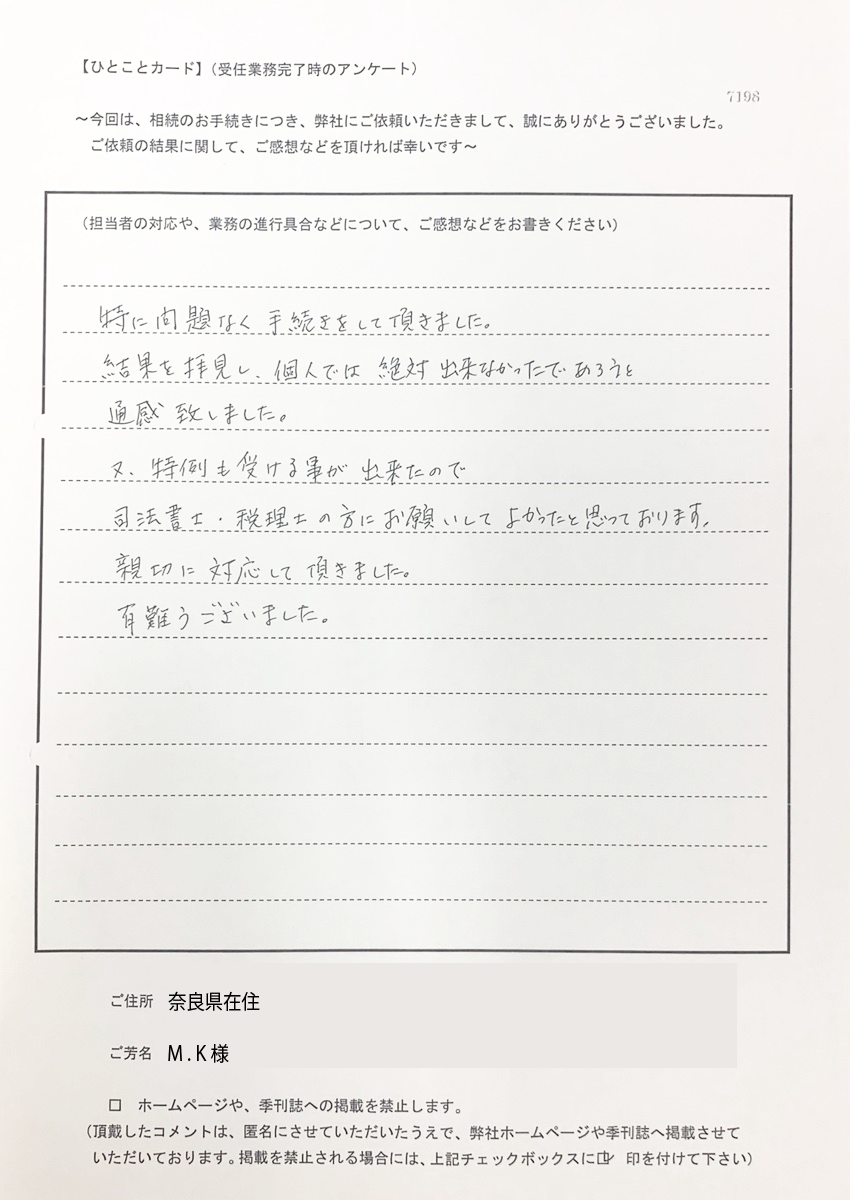 【ひとことカード】（受任業務完了時のアンケート）
7198
～今回は、相続のお手続きにつき、弊社にご依頼いただきまして、誠にありがとうございました。
ご依頼の結果に関して、ご感想などを頂ければ幸いです～
（担当者の対応や、業務の進行具合などについて、ご感想などをお書きください）
特に問題なく手続きをして頂きました。
結果を拝見し、個人では絶対出来なかったであろうと
通感致しました。
又、特例も受ける事が出来たので
司法書士・税理士の方にお願いしてよかったと思っております。
親切に対応して頂きました。
有難うございました。
ご住所 奈良県在住
ご芳名 M.K様
□ ホームページや、季刊誌への掲載を禁止します。
（頂戴したコメントは、匿名にさせていただいたうえで、弊社ホームページや季刊誌へ掲載させて
いただいております。掲載を禁止される場合には、上記チェックボックスに☑ 印を付けて下さい）